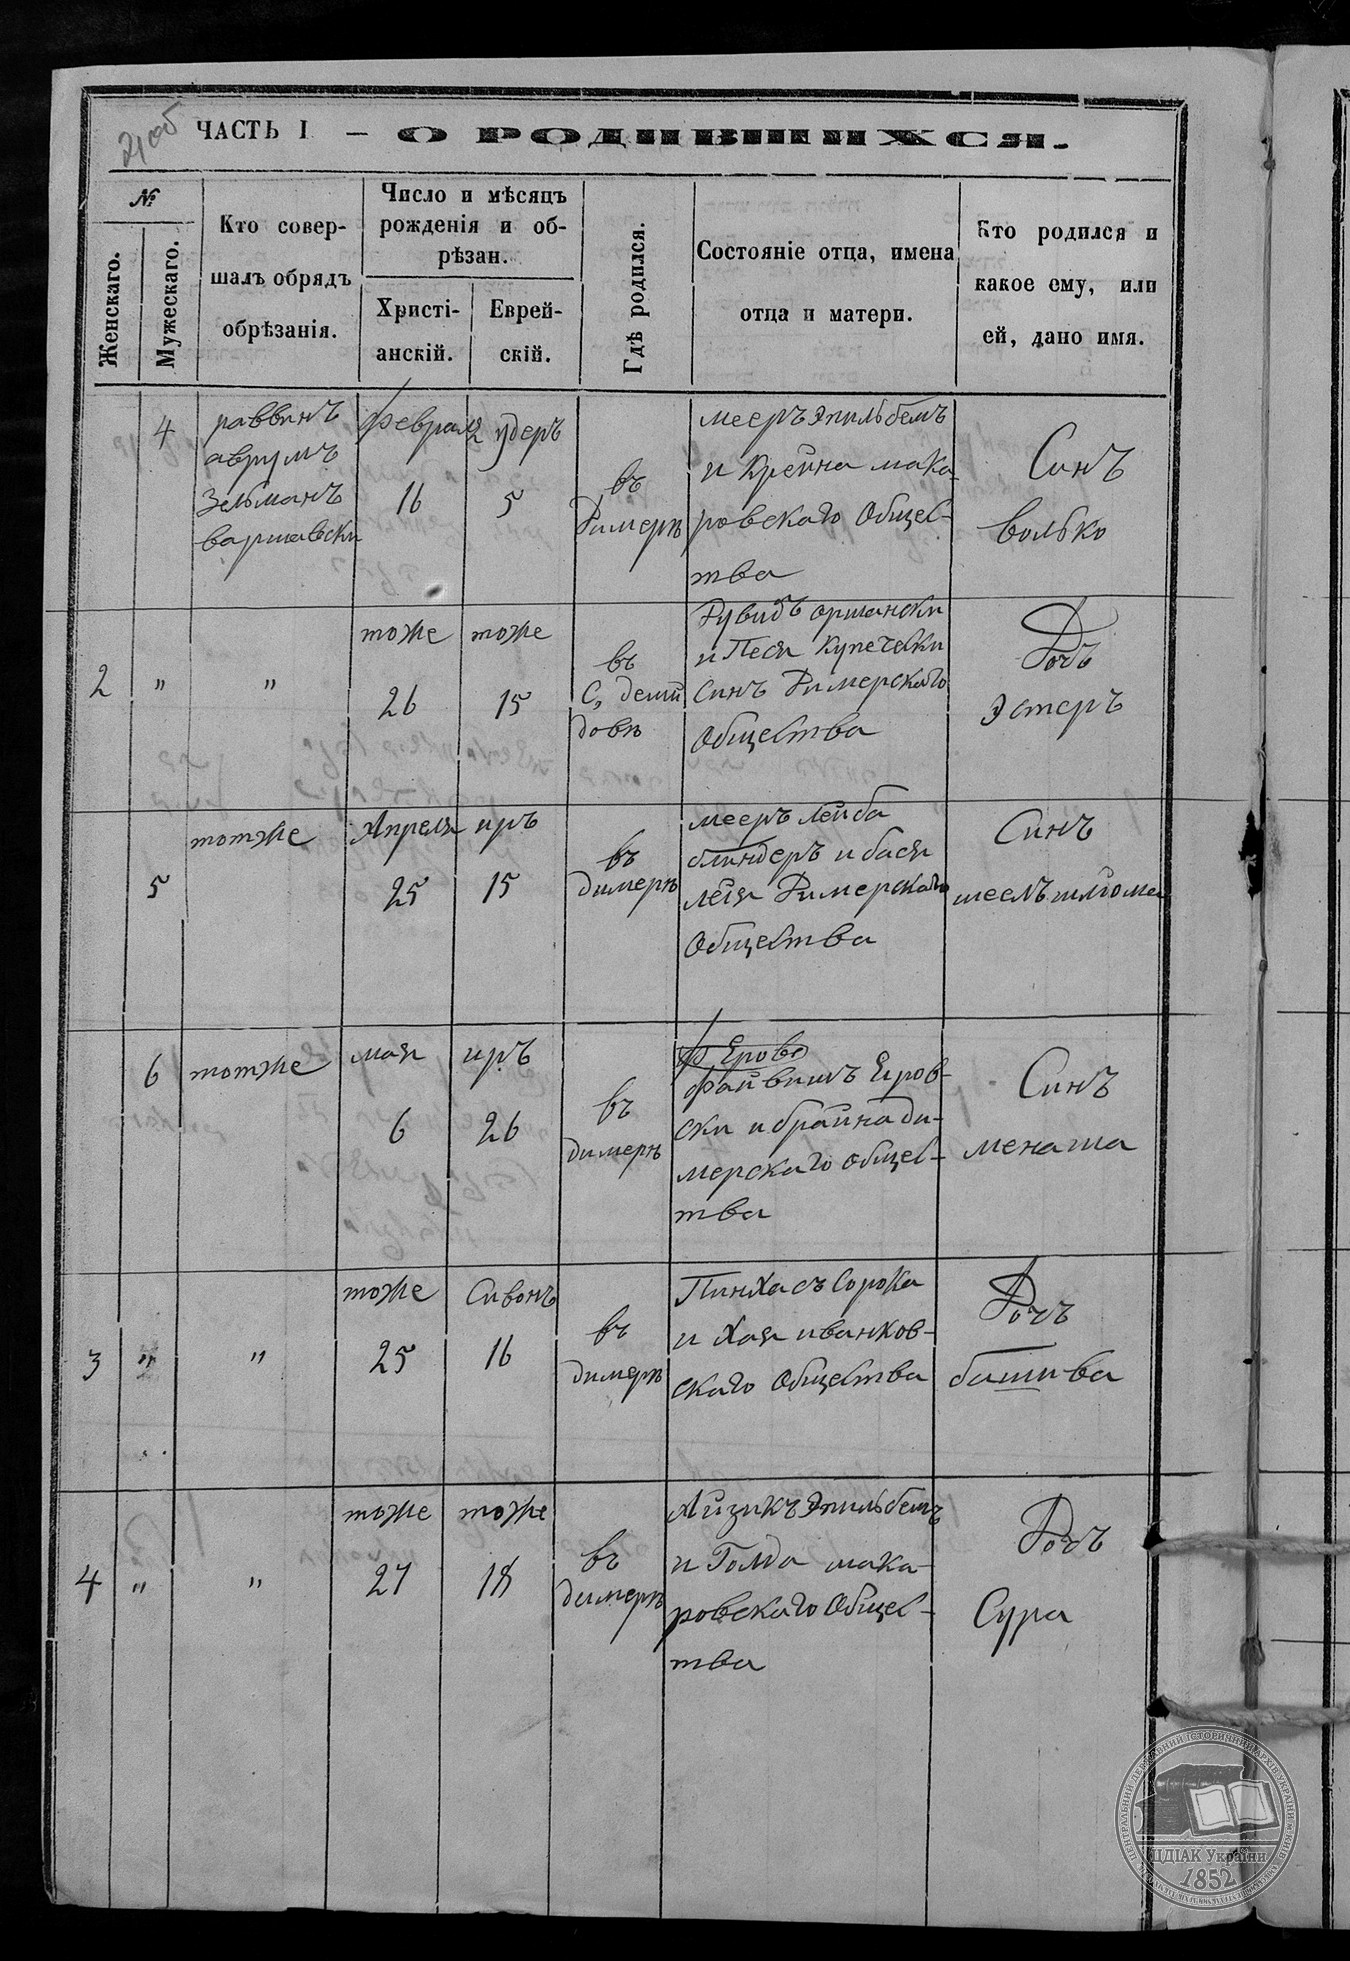 ЧАСТЬ I — О РОДИВШИХСЯ.
№
Женскаго.
Мужескаго.
Кто совер-
шалъ обрядъ
обрѣзанія.
Число и мѣсяцъ
рожденія и об-
рѣзан.
Христі-
анскій.
Еврей-
скій.
Гдѣ родился.
Состояніе отца, имена
отца и матери.
Кто родился и
какое ему, или
ей, дано имя.
4
раввинъ
аврумъ
Зельманъ
варшавски
февраля
16
удеръ
5
въ
Димерѣ
мееръ Эпильбемъ
и Крейна мака-
ровскаго Общес-
тва
Синъ
волько
2
"
"
тоже
26
тоже
15
въ
С, деми
довѣ
Дувидъ оршански
и Песя Купечески
Синъ Димерскаго
Общества
Дочъ
Эстеръ
5
тотже
Апреля
25
иръ
15
въ
димерѣ
мееръ лейба
блиндеръ и бася
лея Димерскаго
Общества
Синъ
шеелъ шлюма
6
тотже
мая
6
иръ
26
въ
димерѣ
файвишъ Еров-
ски и брайна ди-
мерскаго общес-
тва
Синъ
менаша
3
"
"
тоже
25
Сивонъ
16
въ
димерѣ
Пинхасъ Сорока
и Хая иванков-
скаго Общества
Дочъ
башива
4
"
"
тоже
27
тоже
18
въ
димерѣ
Айзикъ Эпильбемъ
и Голда мака-
ровскаго Общес-
тва
Дочъ
Сура
ЦДІАК України
1852